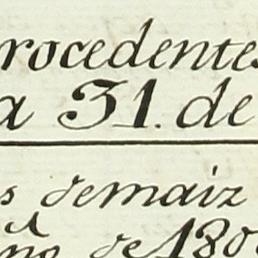 rocedentes
a 31. de
s demaiz
ño de 180